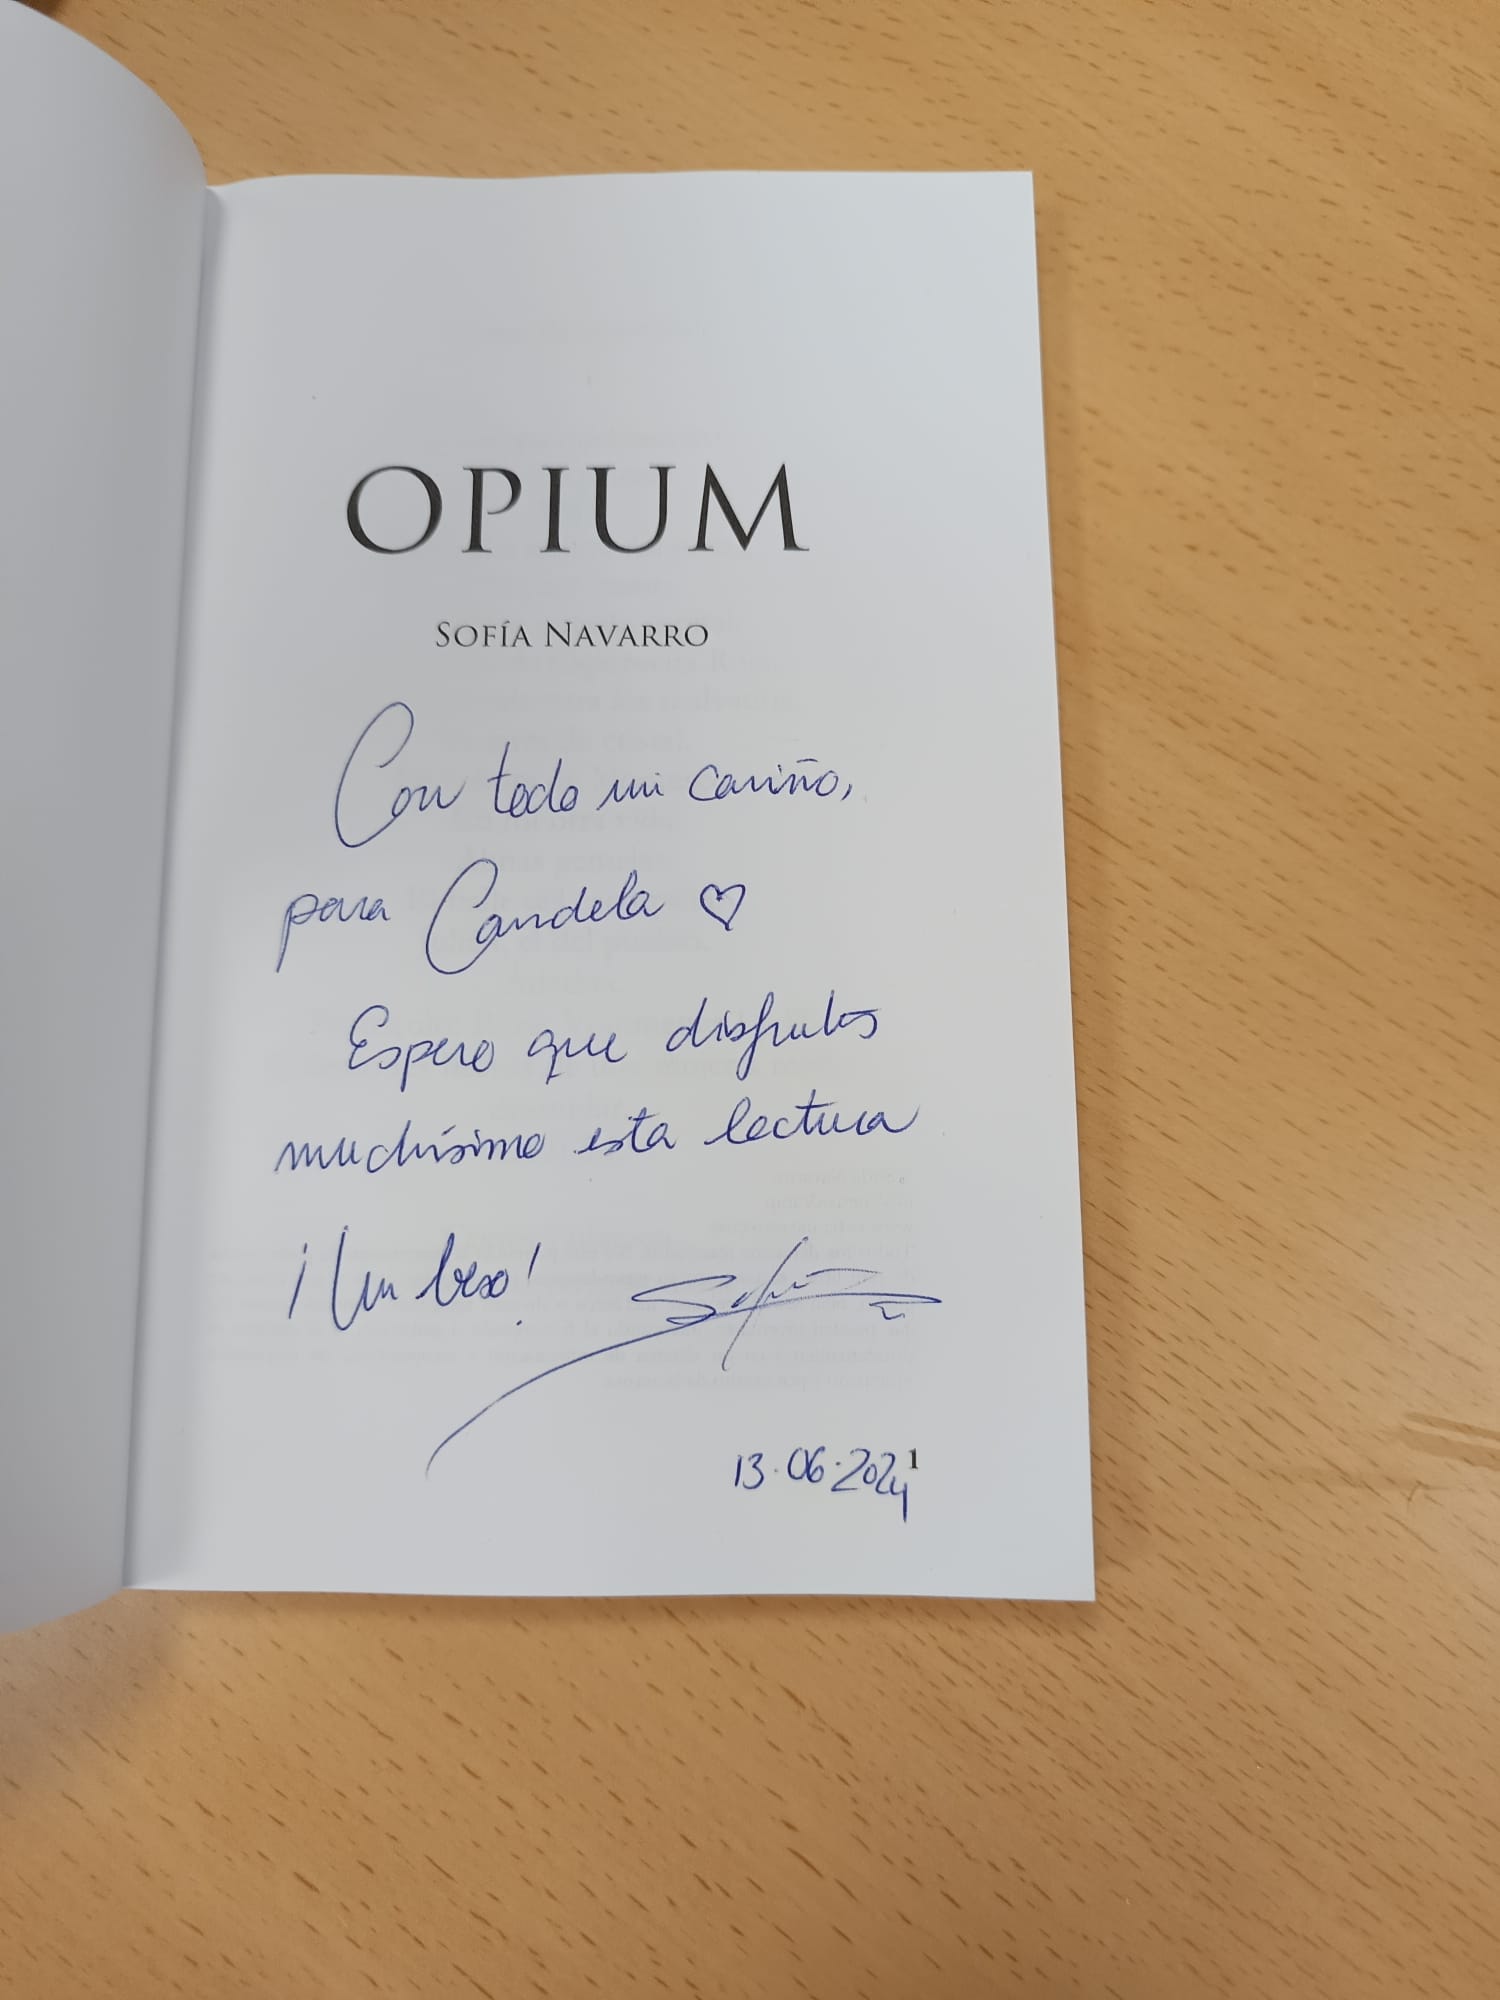 OPIUM
SOFÍA NAVARRO
Con todo mi cariño,
para Candela ♡
Espero que disfrutes
muchísimo esta lectura
¡Un beso!
Sofía
13.06.2024
1